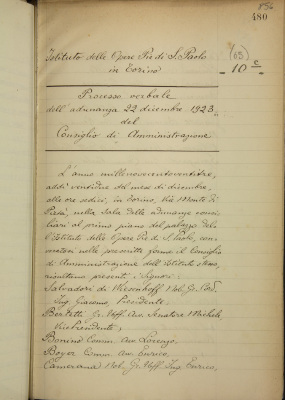 480
Istituto delle Opere Pie di S. Paolo
in Torino
(63)
10 e
Processo verbale
dell'adunanza 22 dicembre 1923
del
Consiglio di Amministrazione
L'anno millenovecentoventitre,
addì ventidue del mese di dicembre,
alle ore sedici, in Torino, Via Monte di
Pietà, nella Sala delle adunanze consi-
liari al primo piano del palazzo del-
l'Istituto delle Opere Pie di S. Paolo, con-
vocatosi nelle prescritte forme il Consiglio
di Amministrazione dell'Istituto stesso,
risultano presenti i Signori:
Salvadori di Wiesenhoff Nob. Gr. Cord.
Ing. Giacomo, Presidente;
Bertetti Gr. Uff. Avv. Senatore Michele
Vice Presidente;
Bonino Comm. Avv. Lorenzo,
Boyer Comm. Avv. Enrico,
Camerana Nob. Gr. Uff. Ing. Enrico,